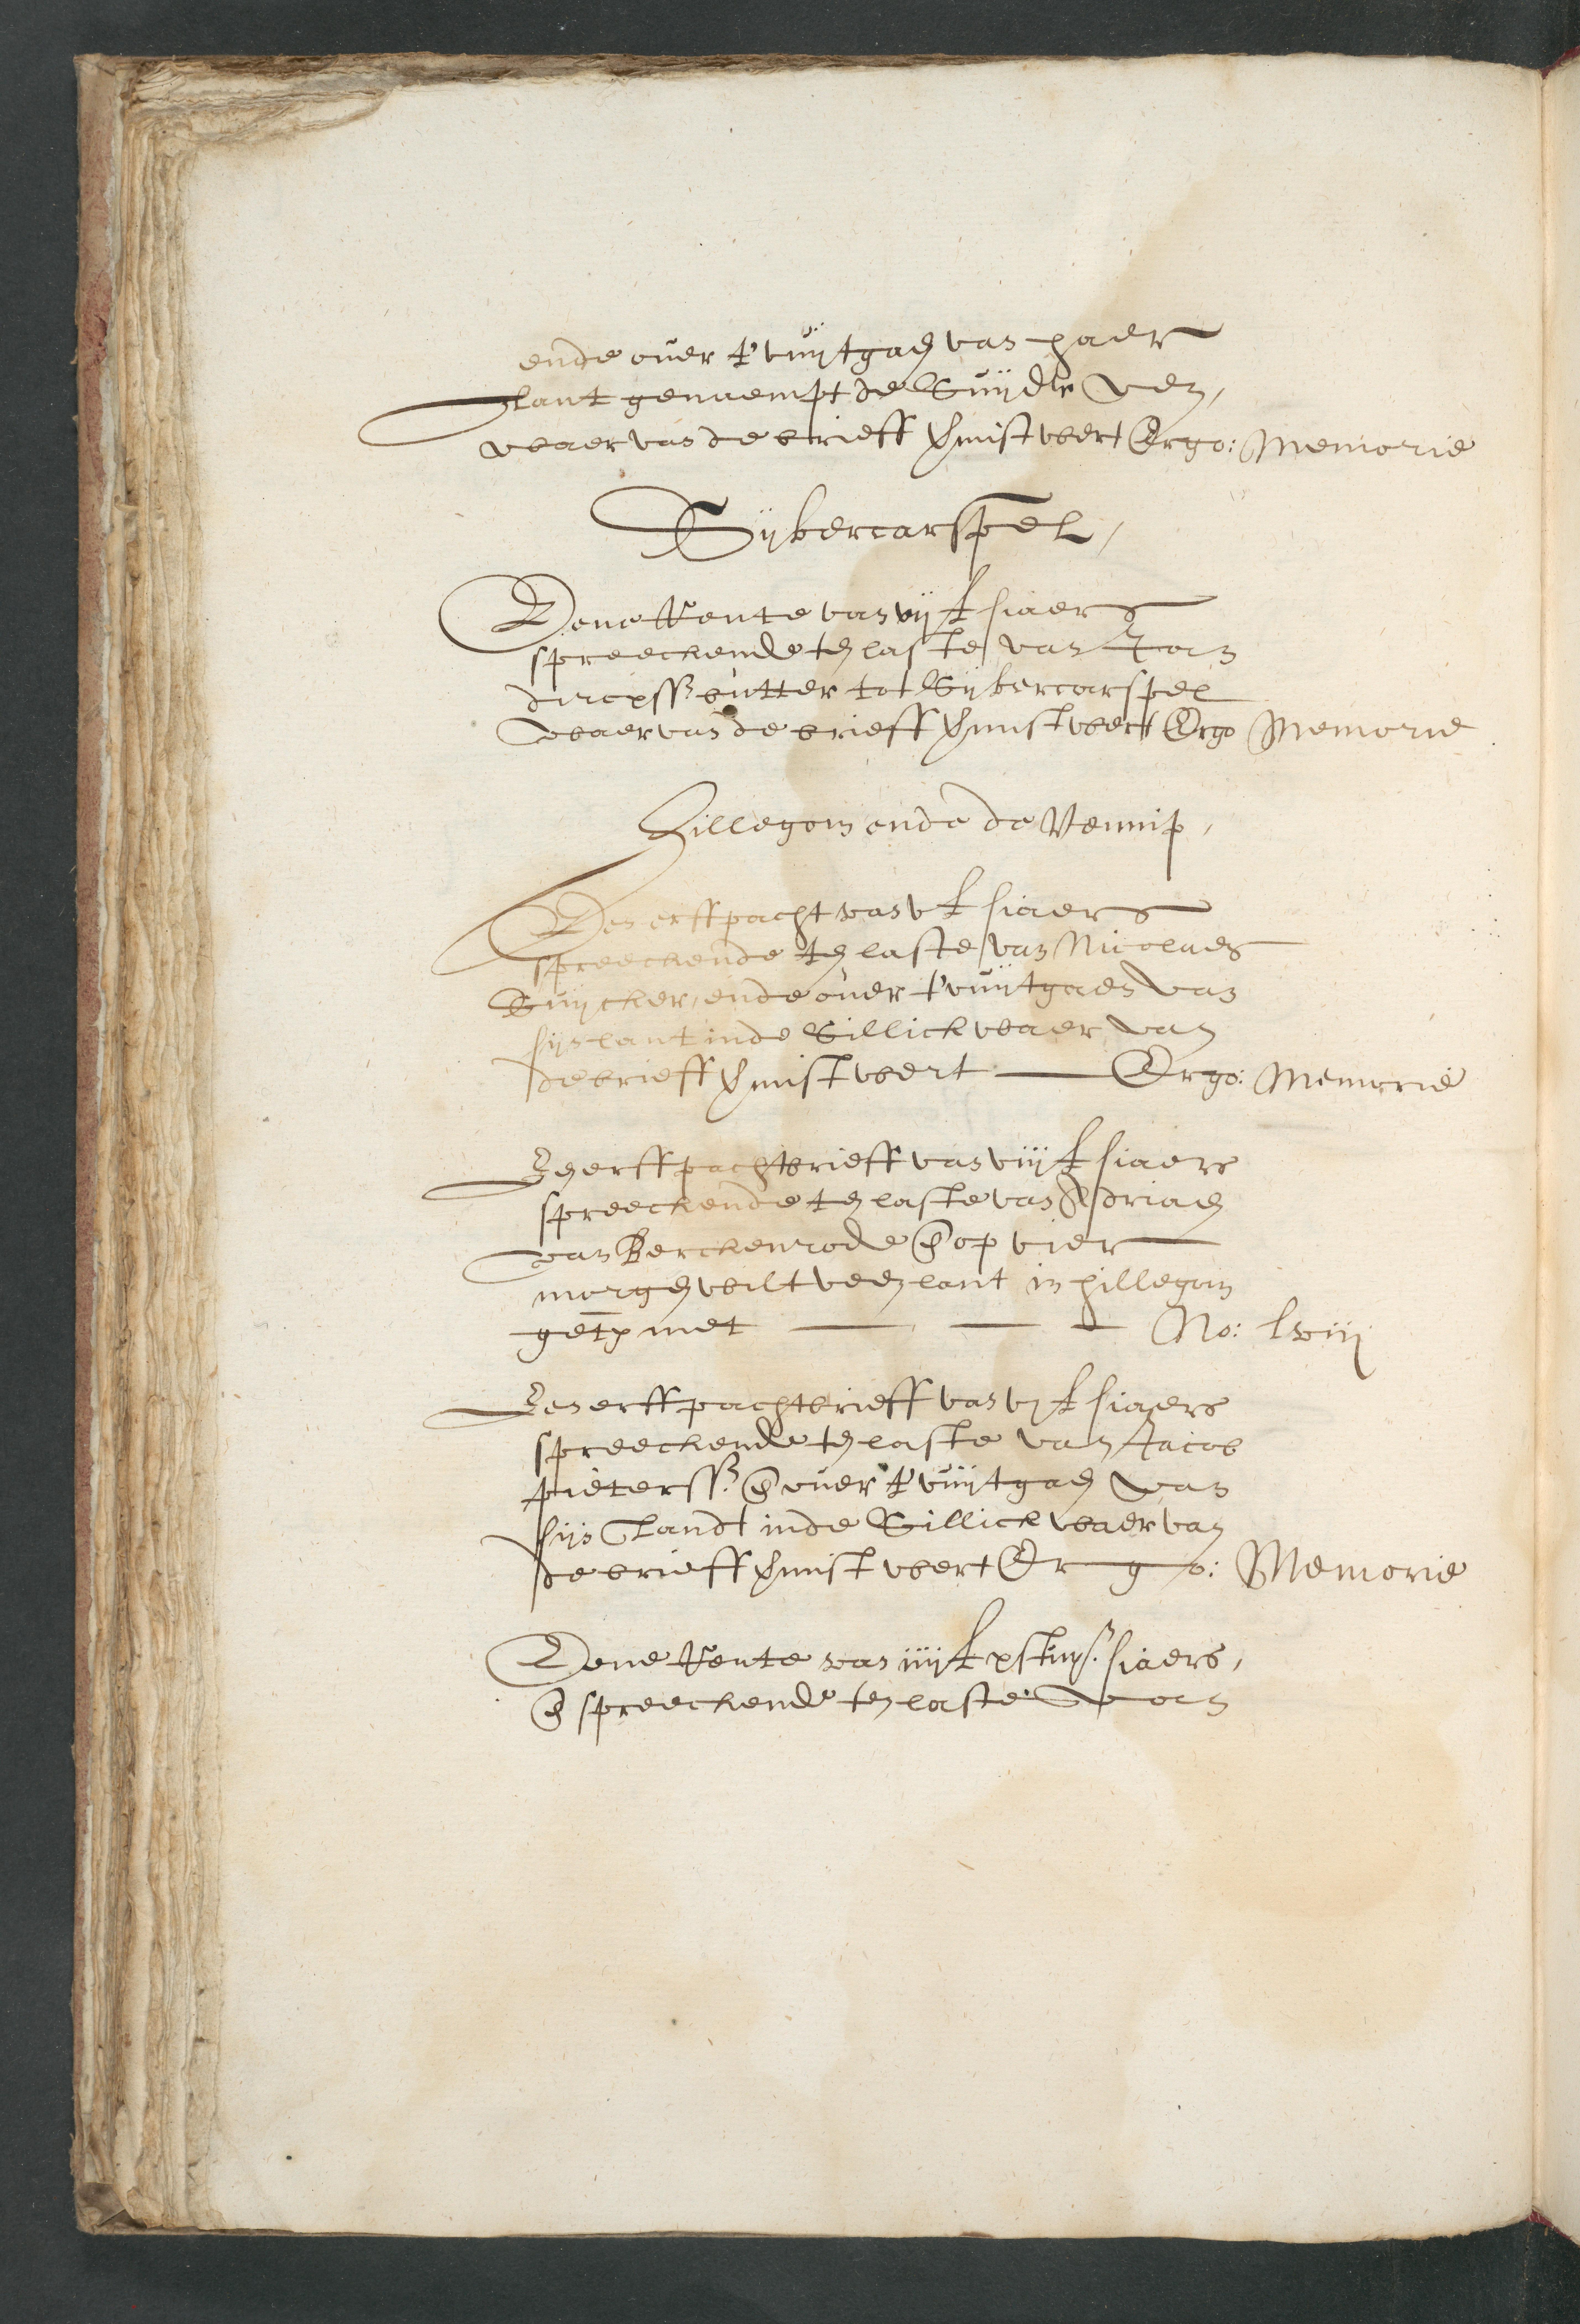 ende over t'vuÿtgaen van haer
lant genaempt de Suÿder Ven,
waer van de brieff gemist wert Ergo: Memorie
Sijbercarspel,
Eene Rente van vij £ siaers
spreeckende ten laste van Jan
dircxss butter tot Sijbercarspel
waer van de brieff gemist wert Ergo Memorie
Hillegom ende de Vennip,
Een erffpacht van v £ siaers
spreeckende ten laste van Nicolaes
Suijcker, ende over t'vuÿtgaen van
sijn lant inde Sillick waer van
de brieff gemist wert Ergo: Memorie
Een erffpachtbrieff van viij £ siaers
spreeckende ten laste van Adriaen
van Berckenrode en op vier
morgen wilt veen lant in hillegom
get met No: lxiij
Een erffpachtbrieff van vj £ siaers
spreeckende ten laste van Jacob
pieterss. en over t'vuÿtgaen van
sijn Landt inde Sillick waer van
de brieff gemist wert Ergo: Memorie
Eene Rente van iiij £ x st siaers,
en spreeckende ten laste van